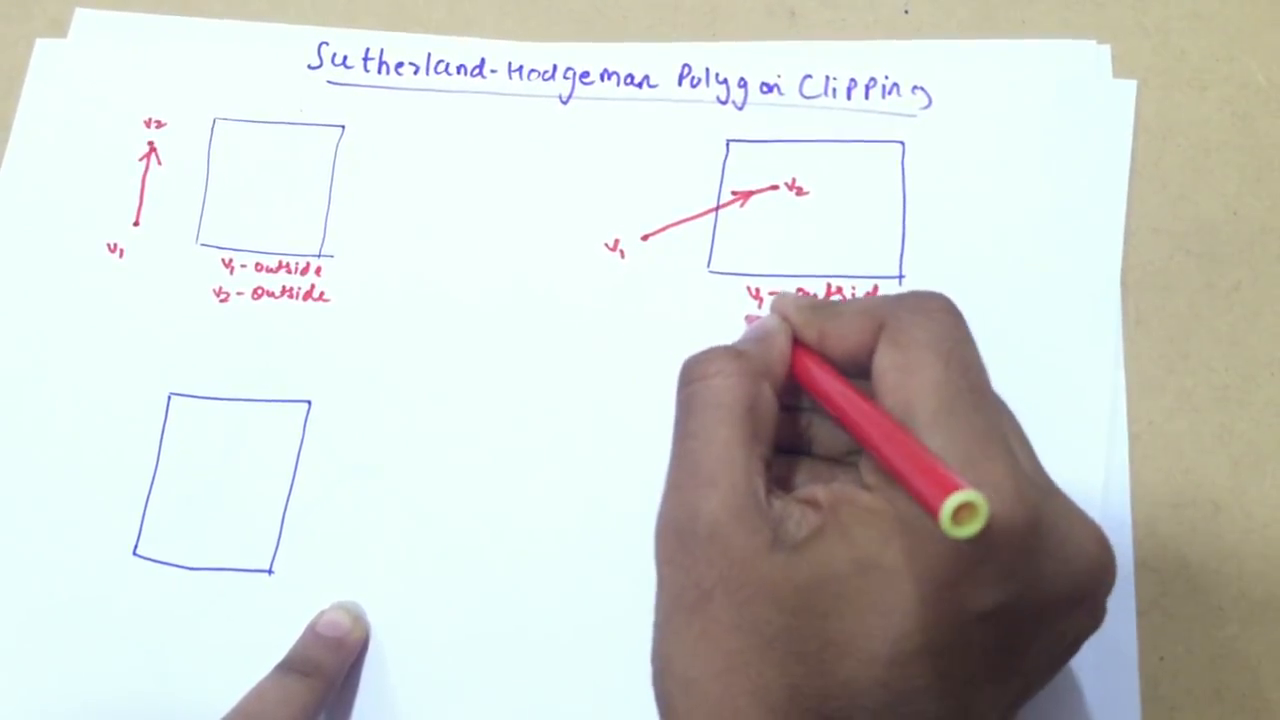 Sutherland-Hodgeman Polygon Clipping
v2
v1
v1-outside
v2-outside
v2
v1
v1-outside